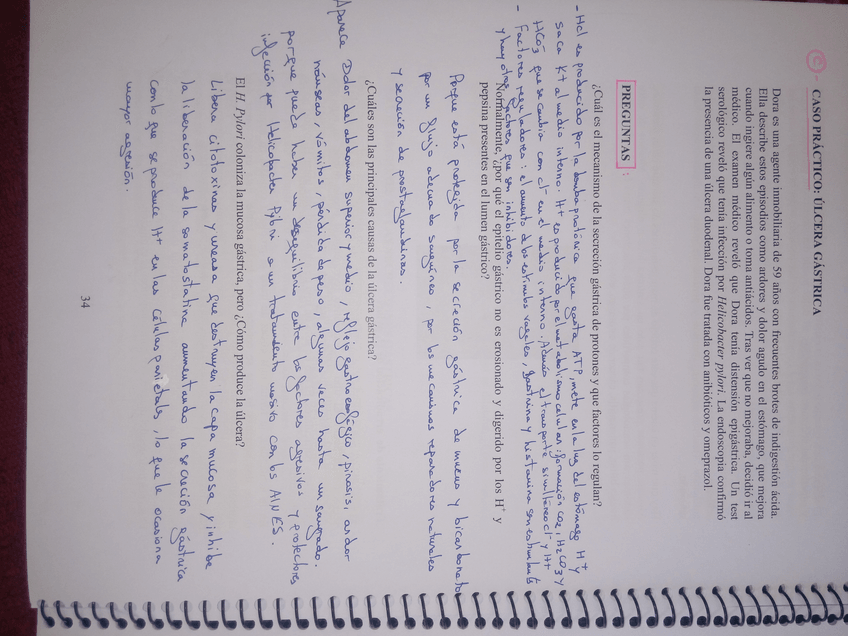 C- CASO PRÁCTICO: ÚLCERA GÁSTRICA
Dora es una agente inmobiliaria de 50 años con frecuentes brotes de indigestión ácida.
Ella describe estos episodios como ardores y dolor agudo en el estómago, que mejora
cuando ingiere algún alimento o toma antiácidos. Tras ver que no mejoraba, decidió ir al
médico. El examen médico reveló que Dora tenía distensión epigástrica. Un test
serológico reveló que tenía infección por Helicobacter pylori. La endoscopia confirmó
la presencia de una úlcera duodenal. Dora fue tratada con anibióticos y omeprazol.
PREGUNTAS :
¿Cuál es el mecanismo de la secreción gástrica de protones y que factores lo regulan?
- Hcl es producido por la bomba protónica que gasta ATP, mete en la luz del estómago H+ y
saca K+ al medio interno. H+ es producido por el metabolismo celular: formación CO2, H2CO3 y
HCO3- que se cambia con cl- en el medio interno. Además el transporte simultáneo cl- y H+
- Factores reguladores: el aumento de los estímulos vagales, gastrina y histamina son estimulantes
y hay otros factores que son inhibidores.
Normalmente, ¿por qué el epitelio gástrico no es erosionado y digerido por los H+ y
pepsina presentes en el lumen gástrico?
Porque está protegida por la secreción gástrica de mucus y bicarbonato
por un flujo adecuado sanguíneo, por los mecanismos reparadores naturales
y secreción de prostaglandinas.
¿Cuáles son las principales causas de la úlcera gástrica?
Aparece Dolor del abdomen superior y medio, reflejo gastroesofágico, pirosis, ardor
náuseas, vómitos, pérdida de peso, algunas veces hasta un sangrado.
porque puede haber un desequilibrio entre los factores agresivos y protectores
infección por Helicobacter Pylori o un tratamiento masivo con los AINES.
El H. Pylori coloniza la mucosa gástrica, pero ¿Cómo produce la úlcera?
Libera citotoxinas y ureasa que destruyen la capa mucosa y inhibe
la liberación de la somatostatina aumentando la secreción gástrica
con lo que se produce H+ en las células parietales, lo que le ocasiona
mayor agresión.
34